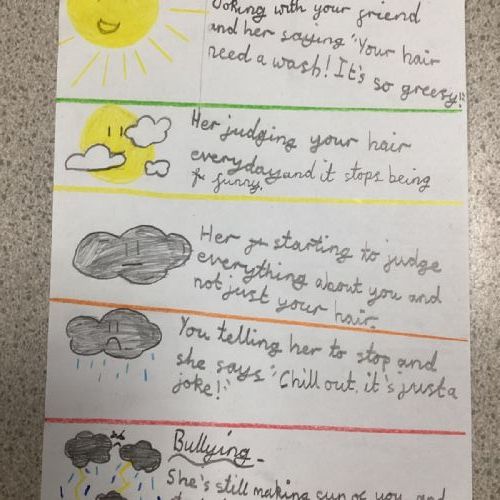 Joking with your friend
and her saying "Your hair
need a wash! It's so greesy!"
Her judging your hair
everyday and it stops being
funny.
Her starting to judge
everything about you and
not just your hair.
You telling her to stop and
she says "Chill out, it's just a
joke!"
Bullying
She's still making fun of you and